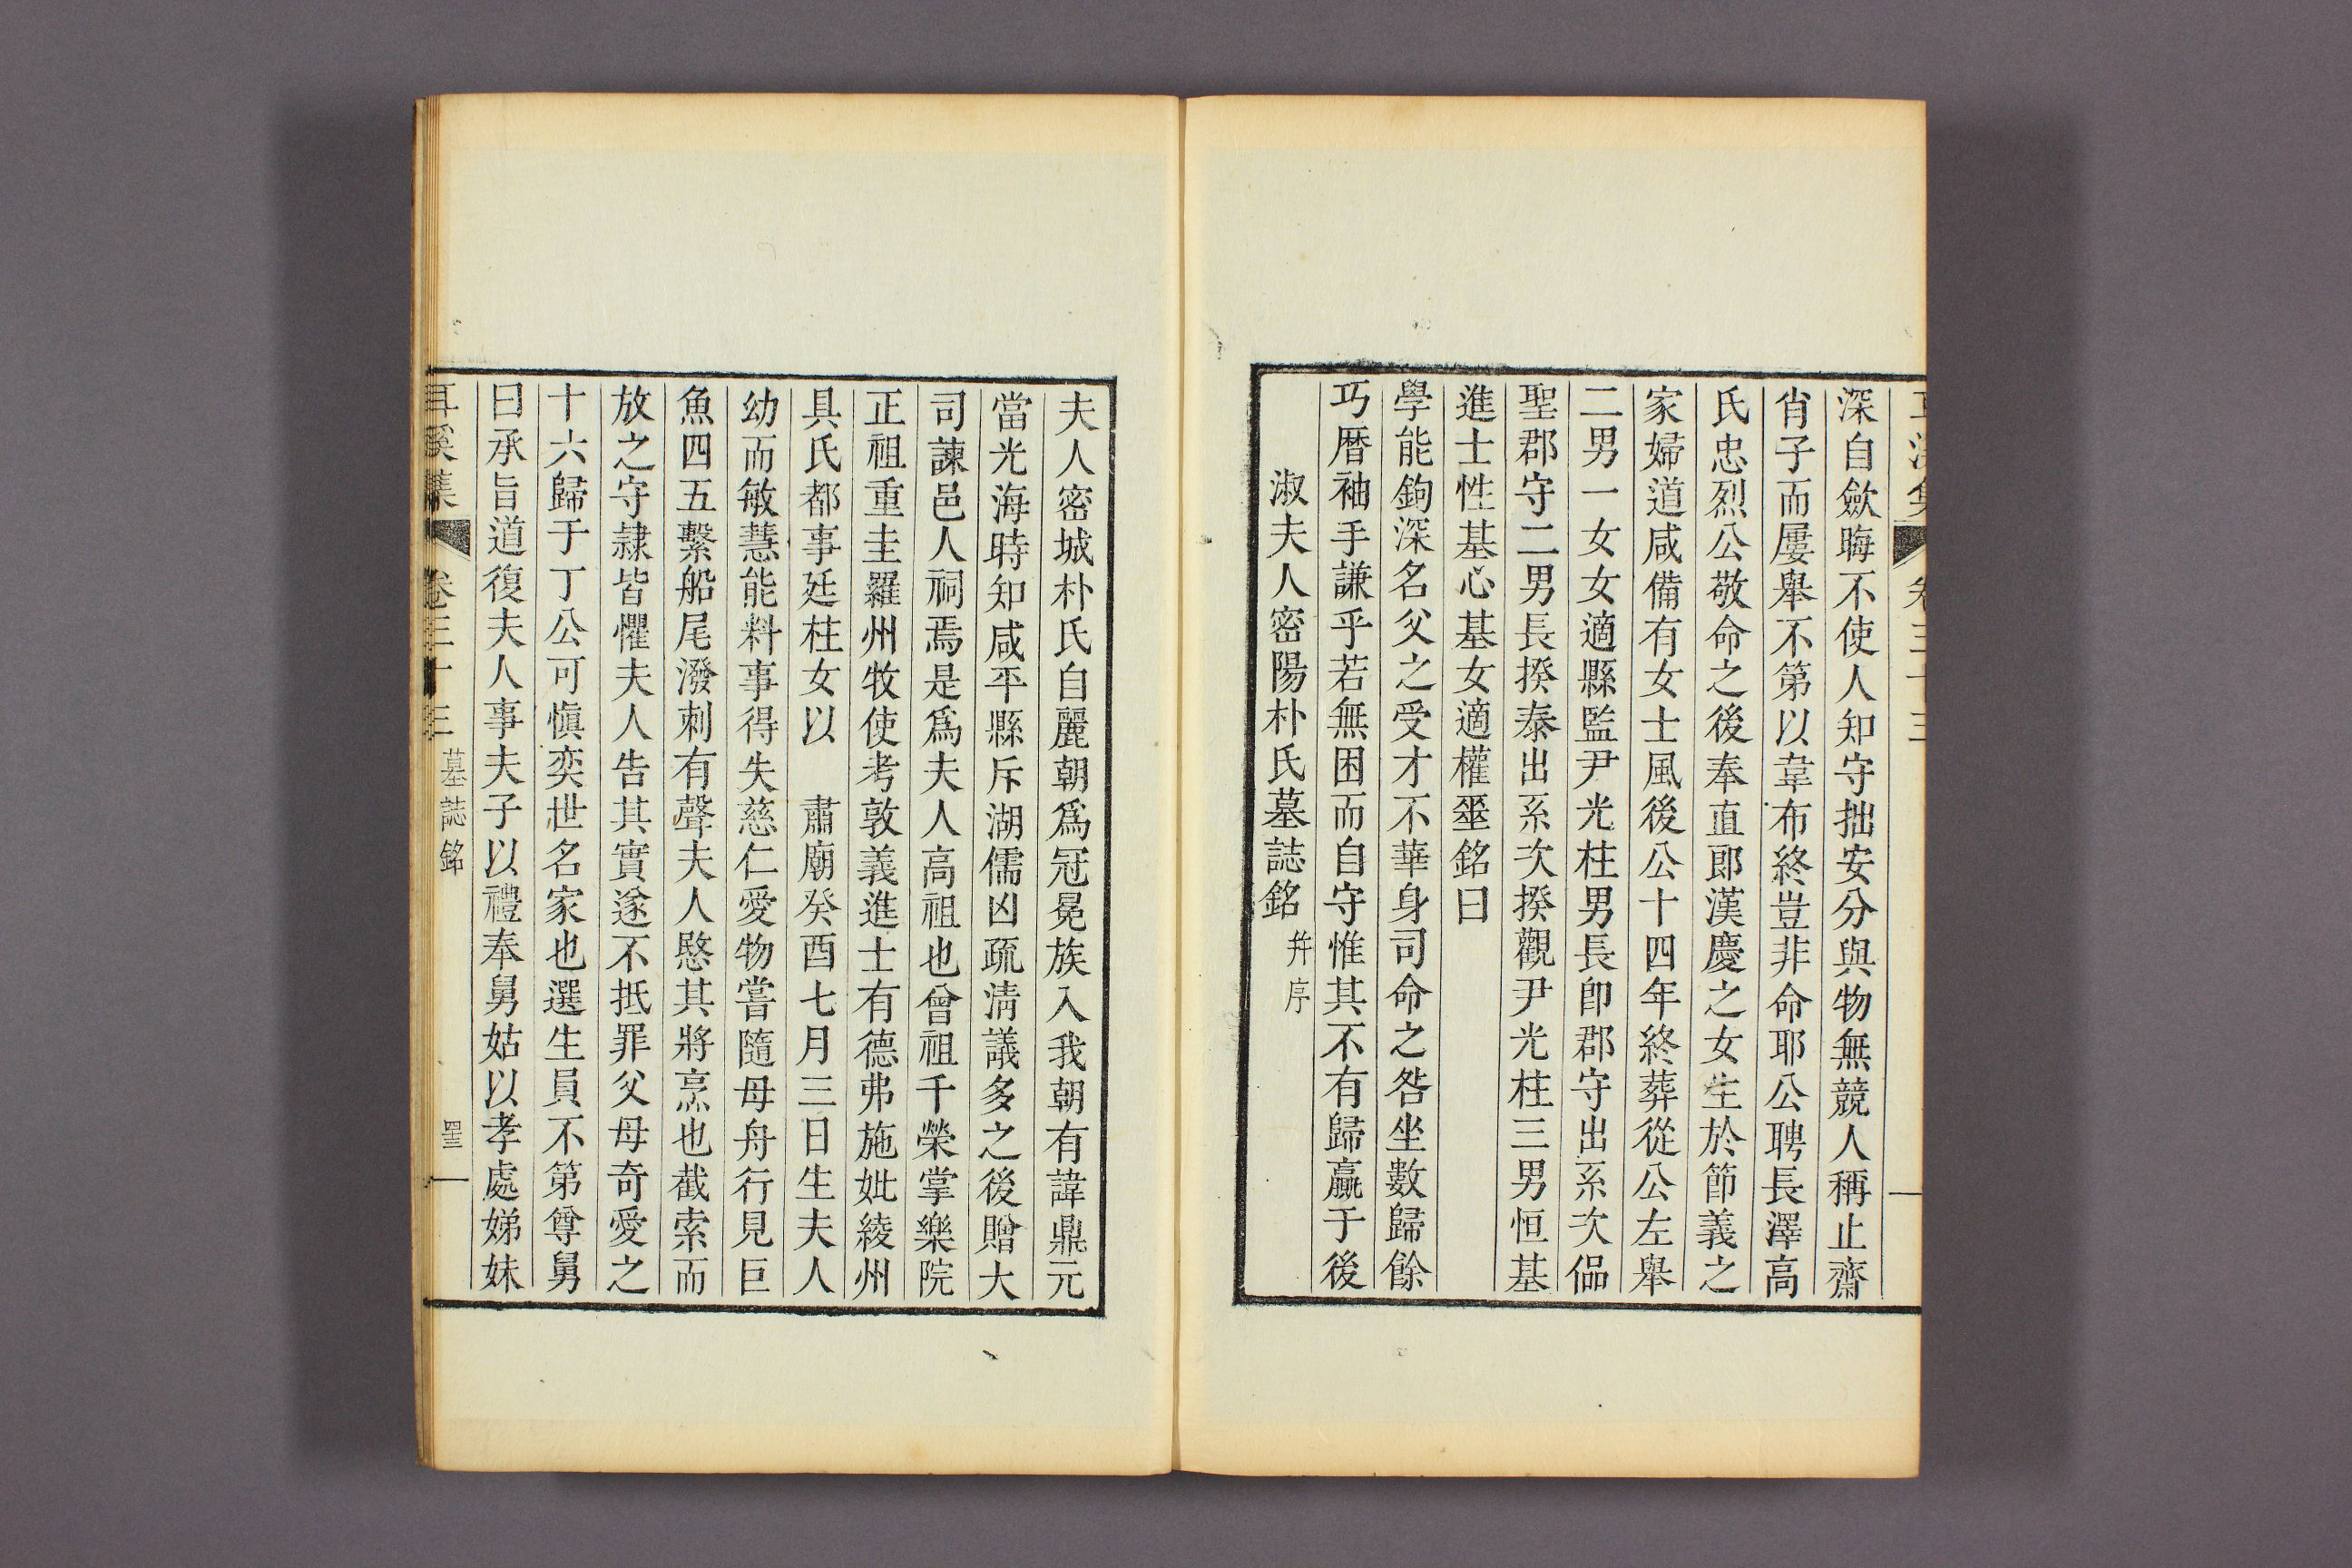 深自斂晦不使人知守拙安分與物無競人稱止齋
肖子而屢舉不第以韋布終豈非命耶公聘長澤高
氏忠烈公敬命之後奉直郎漢慶之女生於節義之
家婦道咸備有女士風後公十四年終葬從公左舉
二男一女女適縣監尹光柱男長卽郡守出系次偘
聖郡守二男長揆泰出系次揆觀尹光柱三男恒基
進士性基心基女適權㘴銘曰
學能鉤深名父之受才不華身司命之咎坐數歸餘
巧曆袖手謙乎若無困而自守惟其不有歸贏于後
淑夫人密陽朴氏墓誌銘 幷序
夫人密城朴氏自麗朝爲冠冕族入我朝有諱鼎元
當光海時知咸平縣斥湖儒凶疏淸議多之後贈大
司諫邑人祠焉是爲夫人高祖也曾祖千榮掌樂院
正祖重圭羅州牧使考敦義進士有德弗施妣綾州
具氏都事廷柱女以 肅廟癸酉七月三日生夫人
幼而敏慧能料事得失慈仁愛物嘗隨母舟行見巨
魚四五繫船尾潑剌有聲夫人愍其將烹也截索而
放之守隷皆懼夫人告其實遂不抵罪父母奇愛之
十六歸于丁公可愼奕世名家也選生員不第尊舅
曰承旨道復夫人事夫子以禮奉舅姑以孝處娣妹
耳溪集 卷三十三 墓誌銘 四三